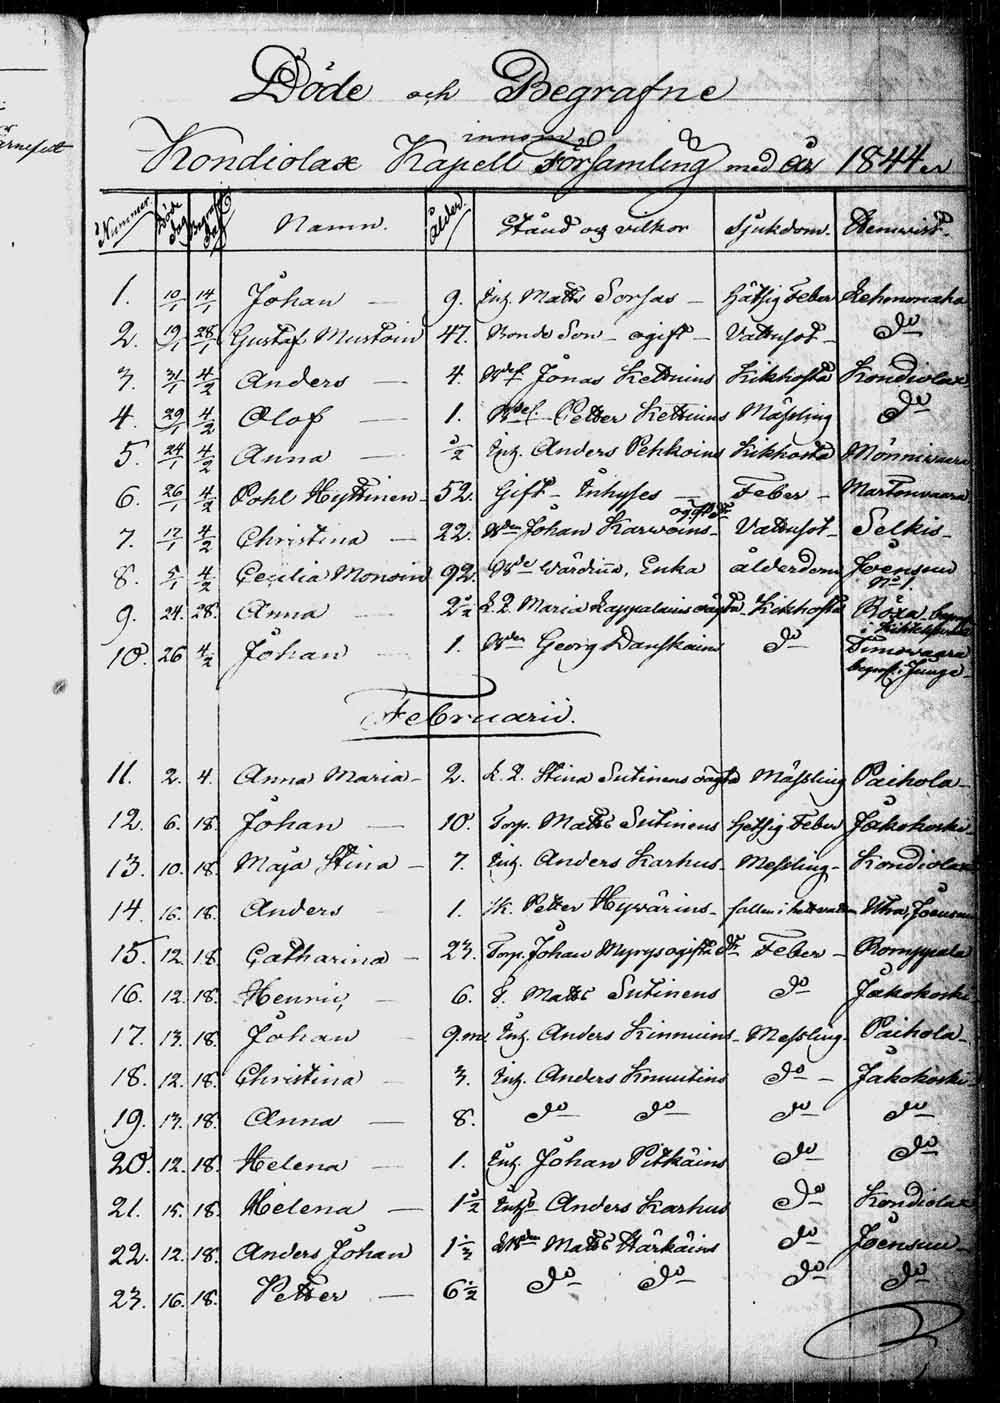 Döde och Begrafne
innom
Kondiolax Kapell Församling med år 1844
Nummer. Döde dag Begrafn. dag Namn. Ålder. Stånd og vilkor Sjukdom. Hemvist.
1. 10/1 14/1 Johan — 9. Inh. Matts Sorsas — Hätsig Feber Lehmonaho
2. 19/1 28/1 Gustaf Mustoin 47. Bonde Son – ogift – Vattusot – do
3. 31/1 4/2 Anders — 4. Jonas Kettuins Kikhosta Kondiolax
4. 29/1 4/2 Olof — 1. Petter Kettuins Mässling do
5. 24/1 4/2 Anna — 1/2 Inh. Anders Pehkoins Kikhosta Mönnivaara
6. 26/1 4/2 Pohl Hyttinen – 52. Gift – Inhyses — Feber – Martonvaara
7. 17/1 4/2 Christina — 22. Johan Karvoins – ogift Dr Vattusot – Selkis –
8. 5/1 4/2 Cecilia Monoin 92. Enka ålderdom Joensuu No 1.
9. 24. 28. Anna — 2 1/2 L. D. Maria Lappalains oägta – Kikhosta Böxa begr. i
10. 26 4/2 Johan — 1. Georg Danskains do Timovaara
begraf. i Junga –
Februarii.
11. 2. 4. Anna Maria – 2. L. D. Stina Sutinens oägta Mässling Paihola –
12. 6. 18. Johan — 10. Torp. Matts Sutinens Hetsig Feber Jakokoski –
13. 10. 18. Maja Stina – 7. Inh. Anders Karhus – Messling – Kondiolax
14. 16. 18. Anders 1. Petter Hyvärins – fallen i hett vatten Utra, Joensuu
15. 12. 18. Catharina – 23. Torp. Johan Myrys ogifta Dr Feber – Romppala
16. 12. 18. Henric, – 6. T. Matts Sutinens do Jakokoski
17. 13. 18. Johan 9.m. Inh. Anders Kinnuins – Messling – Paihola –
18. 12. 18. Christina – 3. Inh. Anders Knuutins do – Jakokoski –
19. 13. 18. Anna — 8. do do do do
20. 12. 18. Helena – 1. Inh. Johan Pitkäins do do
21. 15. 18. Helena — 1 1/2 Inhs Anders Karhus do Kondiolax
22. 12. 18. Anders Johan 1 1/2 Matts Härkäins do Joensuu –
23. 16. 18. Petter — 6 1/2 do do do do